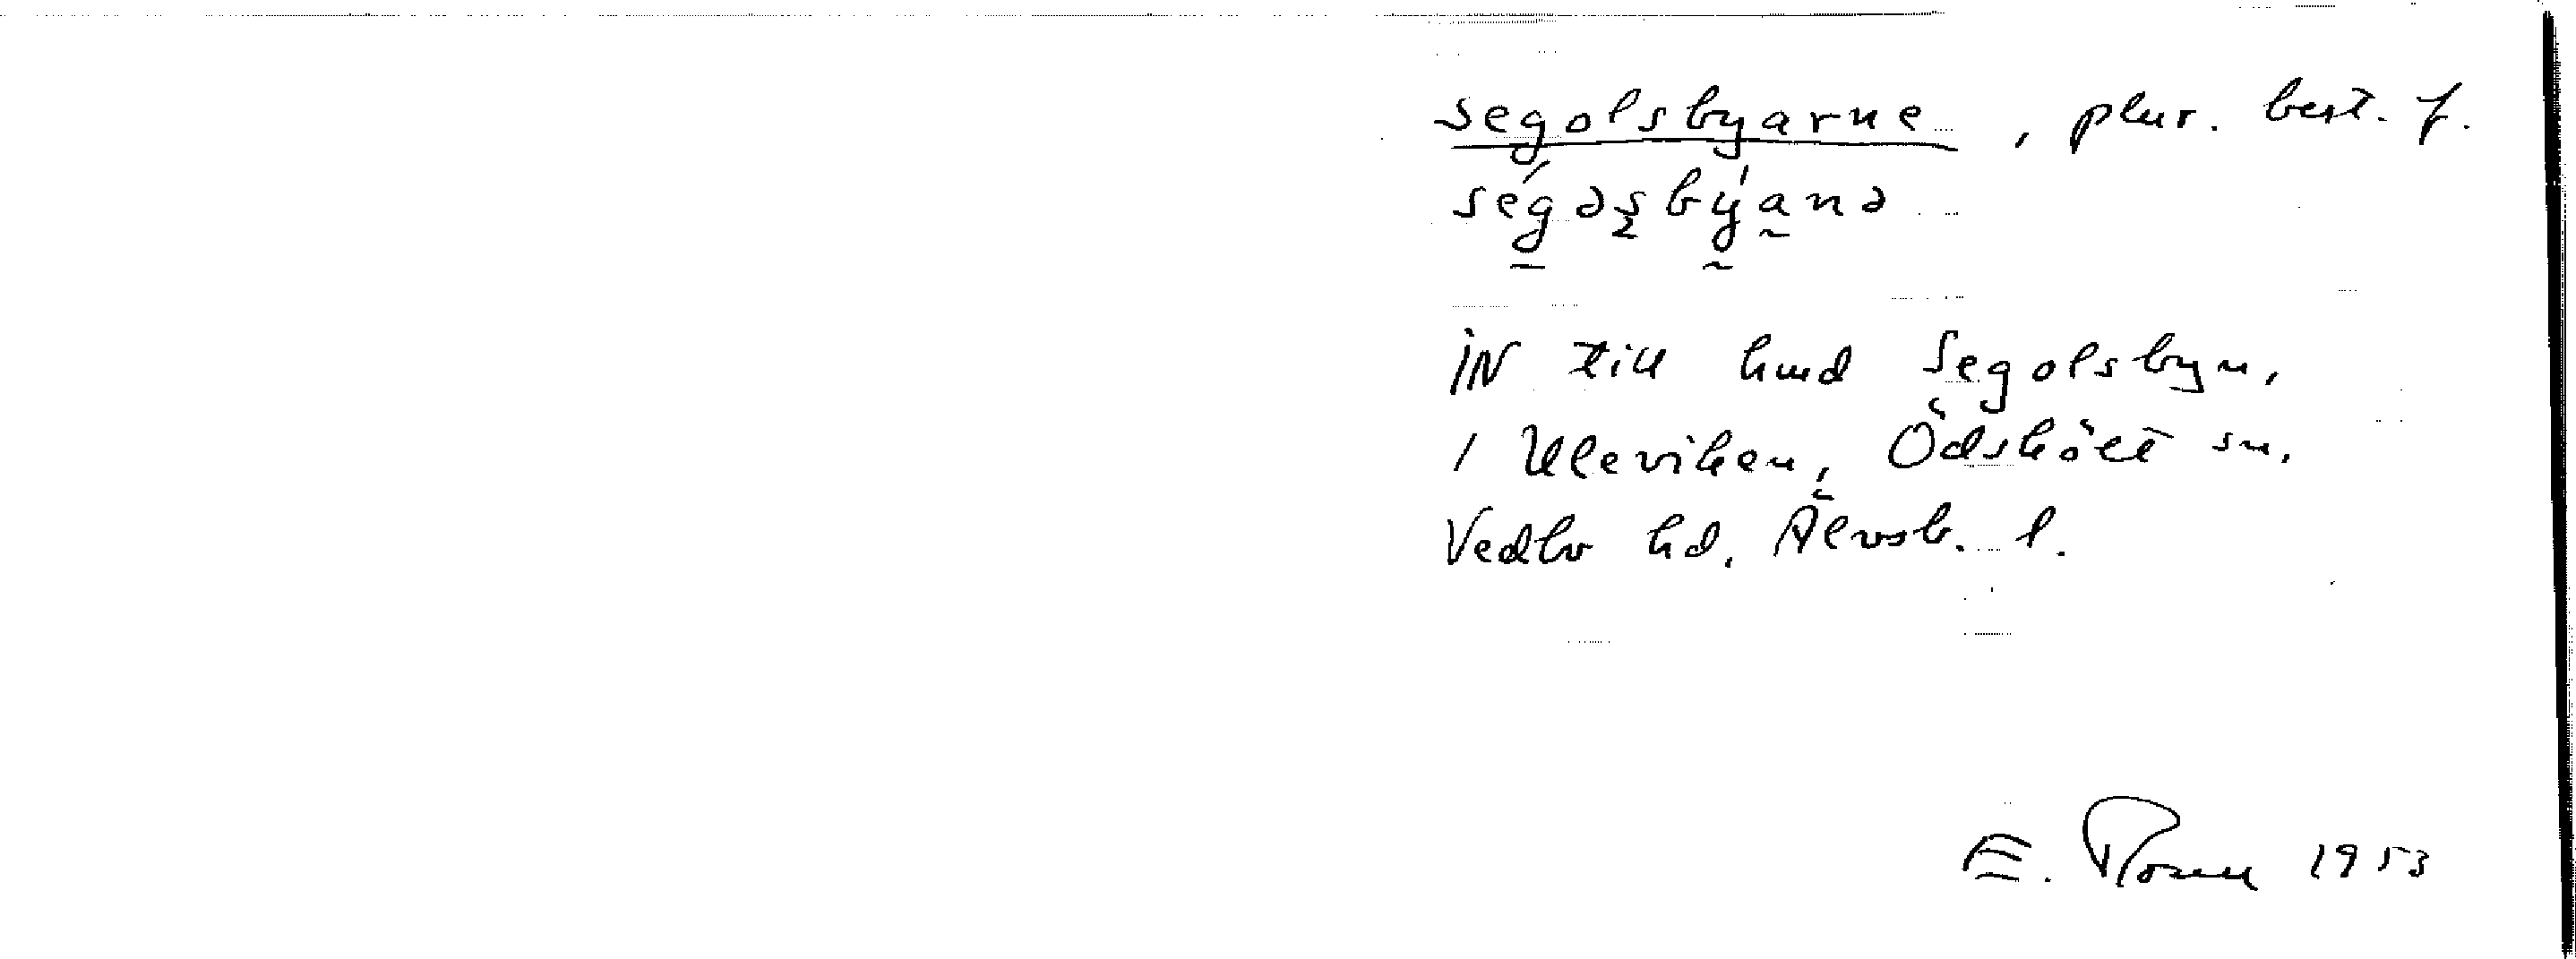 segolsbyarne, plur. best. f.
ségəsbýanə
IN till hmd Segolsbyn,
i Uleviken, Ödskölt sn,
Vedbo hd, Älvsb. l.
E. Rosen 1953